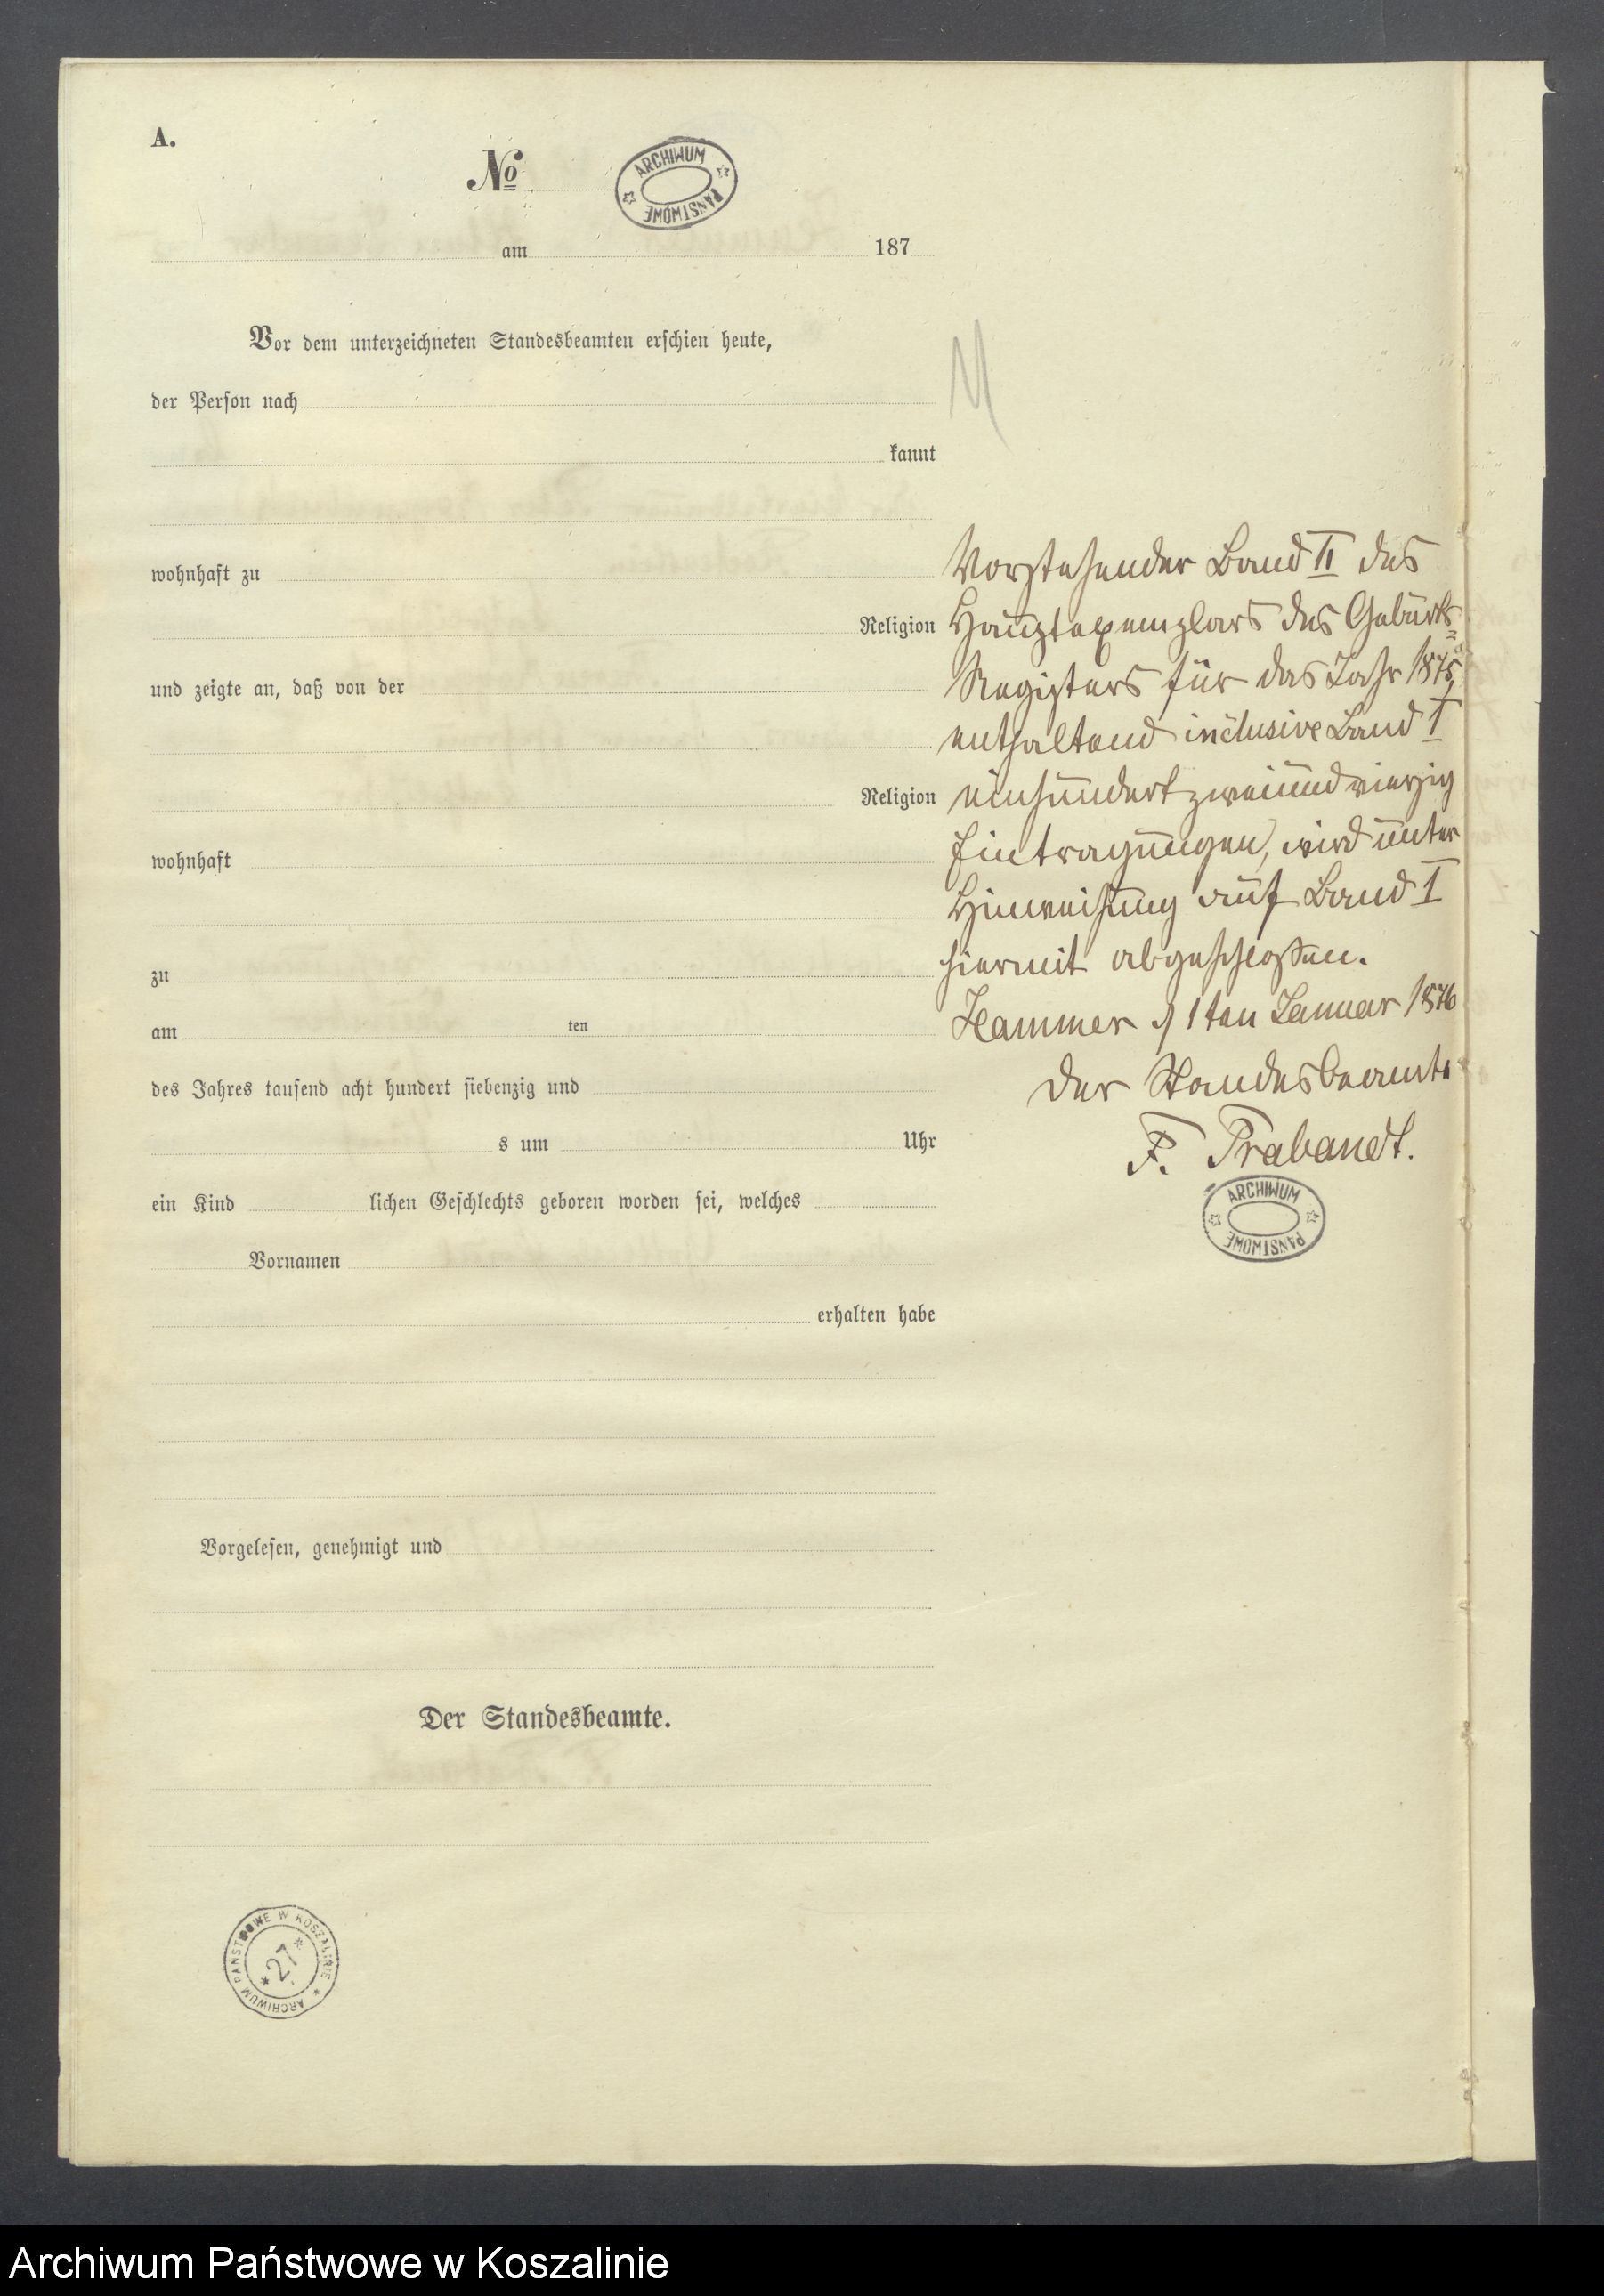 A.
No
ARCHIWUM PAŃSTWOWE
am 187
Vor dem unterzeichneten Standesbeamten erschien heute,
der Person nach
kannt
wohnhaft zu
Religion
und zeigte an, daß von der
Religion
wohnhaft
zu
am ten
des Jahres tausend acht hundert siebenzig und
s um Uhr
ein Kind lichen Geschlechts geboren worden sei, welches
Vornamen
erhalten habe
Vorgelesen, genehmigt und
Der Standesbeamte.
Vorstehender Band II des
Hauptexemplars des Geburts-
Registers für das Jahr 1875,
enthaltend inclusive Band I
einhundert zweiundvierzig
Eintragungen, wird unter
Hinweisung auf Band I
hiermit abgeschlossen.
Hammer, 1ten Januar 1876
Der Standesbeamte
F. Prabandt.
ARCHIWUM PAŃSTWOWE
ARCHIWUM PAŃSTWOWE W KOSZALINIE
*27*
Archiwum Państwowe w Koszalinie